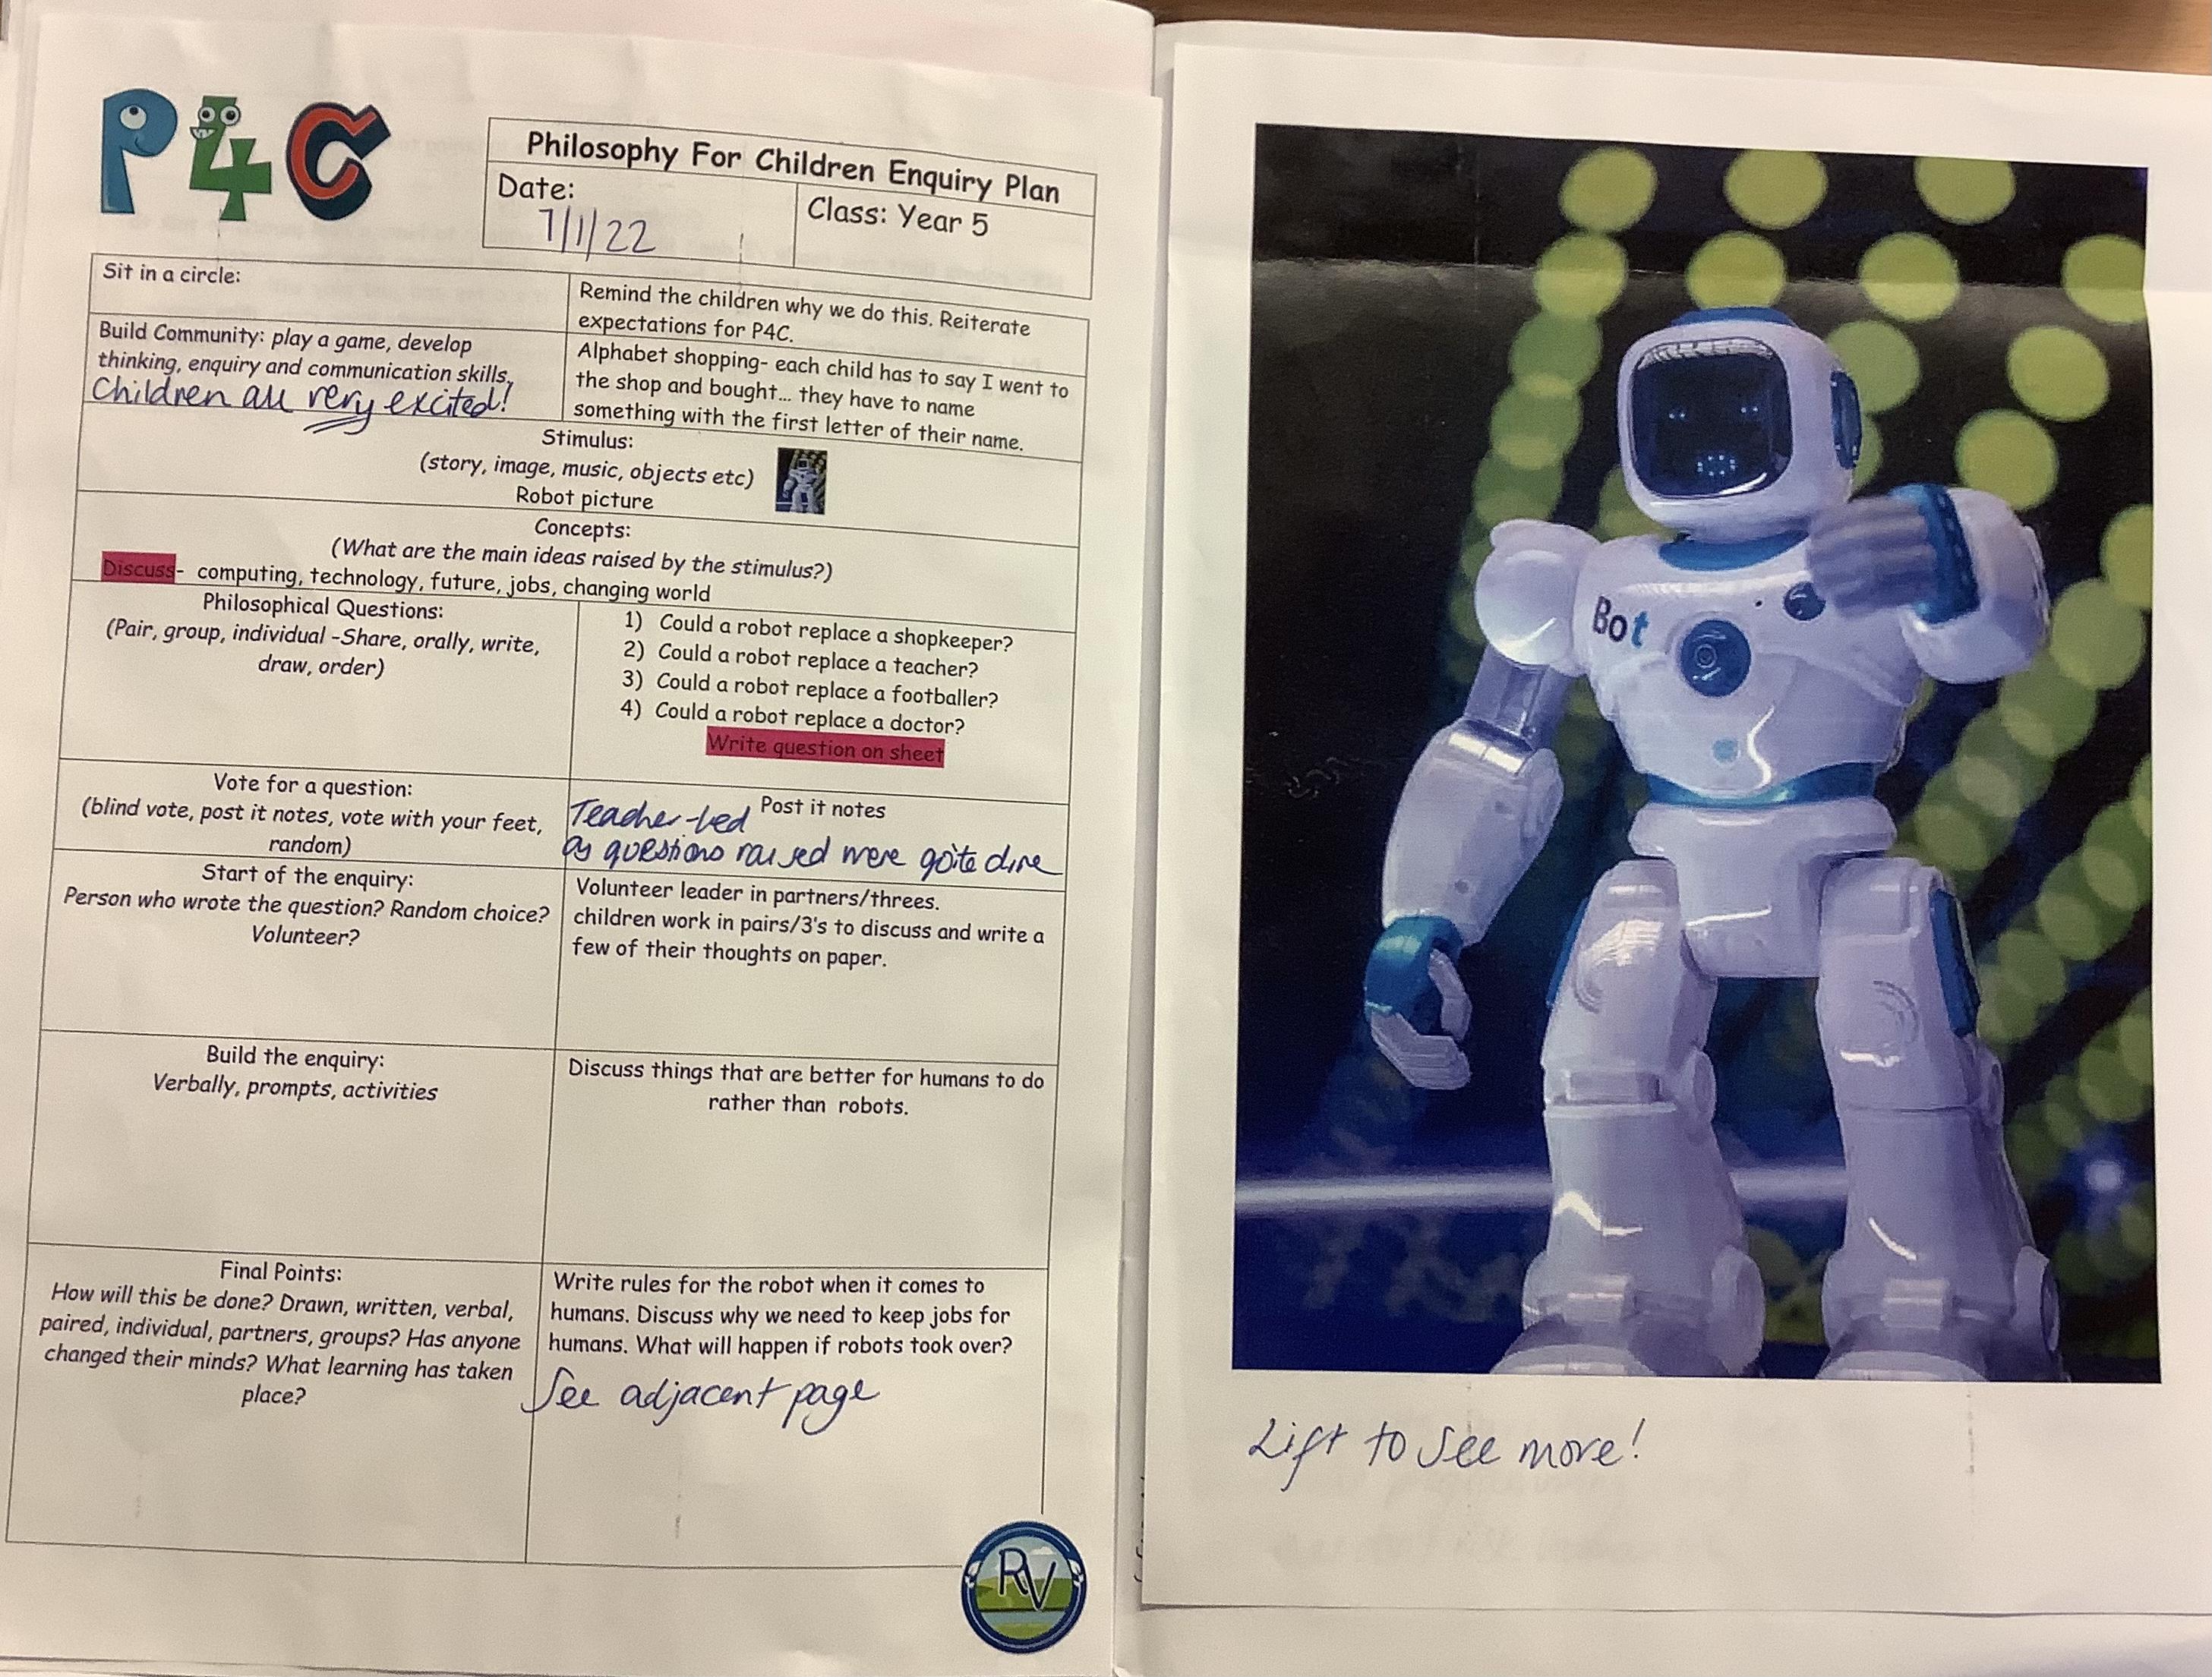 P4C
Philosophy For Children Enquiry Plan
Date:
7/1/22
Class: Year 5
Sit in a circle:
Remind the children why we do this. Reiterate
expectations for P4C.
Build Community: play a game, develop
thinking, enquiry and communication skills,
Children are very excited!
Alphabet shopping- each child has to say I went to
the shop and bought... they have to name
something with the first letter of their name.
Stimulus:
(story, image, music, objects etc)
Robot picture
Concepts:
(What are the main ideas raised by the stimulus?)
Discuss- computing, technology, future, jobs, changing world
Philosophical Questions:
(Pair, group, individual -Share, orally, write,
draw, order)
1) Could a robot replace a shopkeeper?
2) Could a robot replace a teacher?
3) Could a robot replace a footballer?
4) Could a robot replace a doctor?
Write question on sheet
Vote for a question:
(blind vote, post it notes, vote with your feet,
random)
Post it notes
Teacher-led
as questions raised were quite
Start of the enquiry:
Person who wrote the question? Random choice?
Volunteer?
Volunteer leader in partners/threes.
children work in pairs/3's to discuss and write a
few of their thoughts on paper.
Build the enquiry:
Verbally, prompts, activities
Discuss things that are better for humans to do
rather than robots.
Final Points:
How will this be done? Drawn, written, verbal,
paired, individual, partners, groups? Has anyone
changed their minds? What learning has taken
place?
Write rules for the robot when it comes to
humans. Discuss why we need to keep jobs for
humans. What will happen if robots took over?
See adjacent page
RV
Bot
Lift to see more!